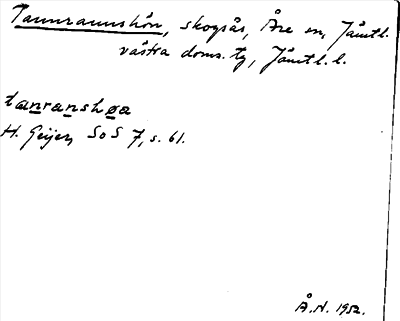 Tannraunshön, skogsås, Åre sn, Jämtl.
västra doms. tg, Jämtl. l.
tanranshøa
H. Geijer, SoS 7, s. 61.
Å.N. 1952.